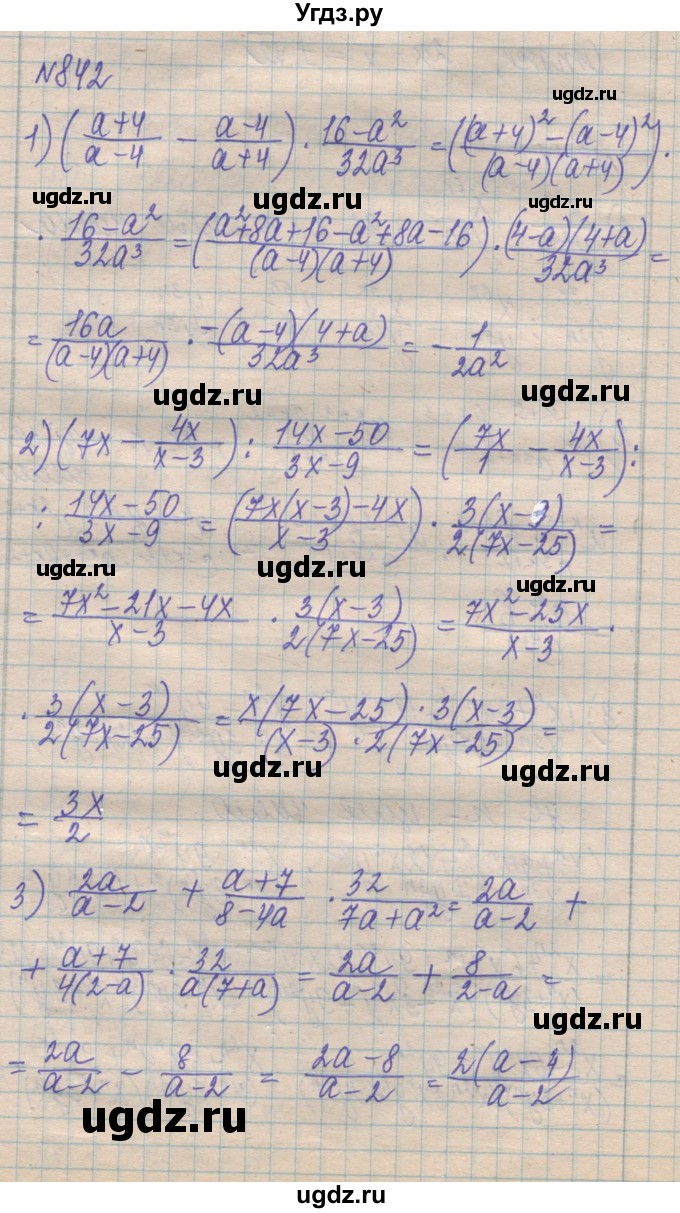 Угдз.ру
№842
1) ((a+4)/(a-4) - (a-4)/(a+4)) · (16-a²)/(32a³) = (((a+4)²-(a-4)²)/((a-4)(a+4))) ·
ugdz.ru ugdz.ru ugdz.ru
· (16-a²)/(32a³) = ((a²+8a+16-a²+8a-16)/((a-4)(a+4))) · ((4-a)(4+a))/(32a³) =
= 16a/((a-4)(a+4)) · (-(a-4)(4+a))/(32a³) = - 1/(2a²)
ugdz.ru ugdz.ru
2) (7x - 4x/(x-3)) : (14x-50)/(3x-9) = (7x/1 - 4x/(x-3)) :
ugdz.ru ugdz.ru
: (14x-50)/(3x-9) = ((7x(x-3)-4x)/(x-3)) · (3(x-3))/(2(7x-25)) =
ugdz.ru ugdz.ru ugdz.ru
= (7x²-21x-4x)/(x-3) · (3(x-3))/(2(7x-25)) = (7x²-25x)/(x-3) ·
ugdz.ru
· (3(x-3))/(2(7x-25)) = (x(7x-25)·3(x-3))/((x-3)·2(7x-25)) =
ugdz.ru ugdz.ru
= 3x/2
3) 2a/(a-2) + (a+7)/(8-4a) · 32/(7a+a²) = 2a/(a-2) +
ugdz.ru ugdz.ru
+ (a+7)/(4(2-a)) · 32/(a(7+a)) = 2a/(a-2) + 8/(2-a) =
ugdz.ru ugdz.ru
= 2a/(a-2) - 8/(a-2) = (2a-8)/(a-2) = (2(a-4))/(a-2)
ugdz.ru ugdz.ru
ugdz.ru